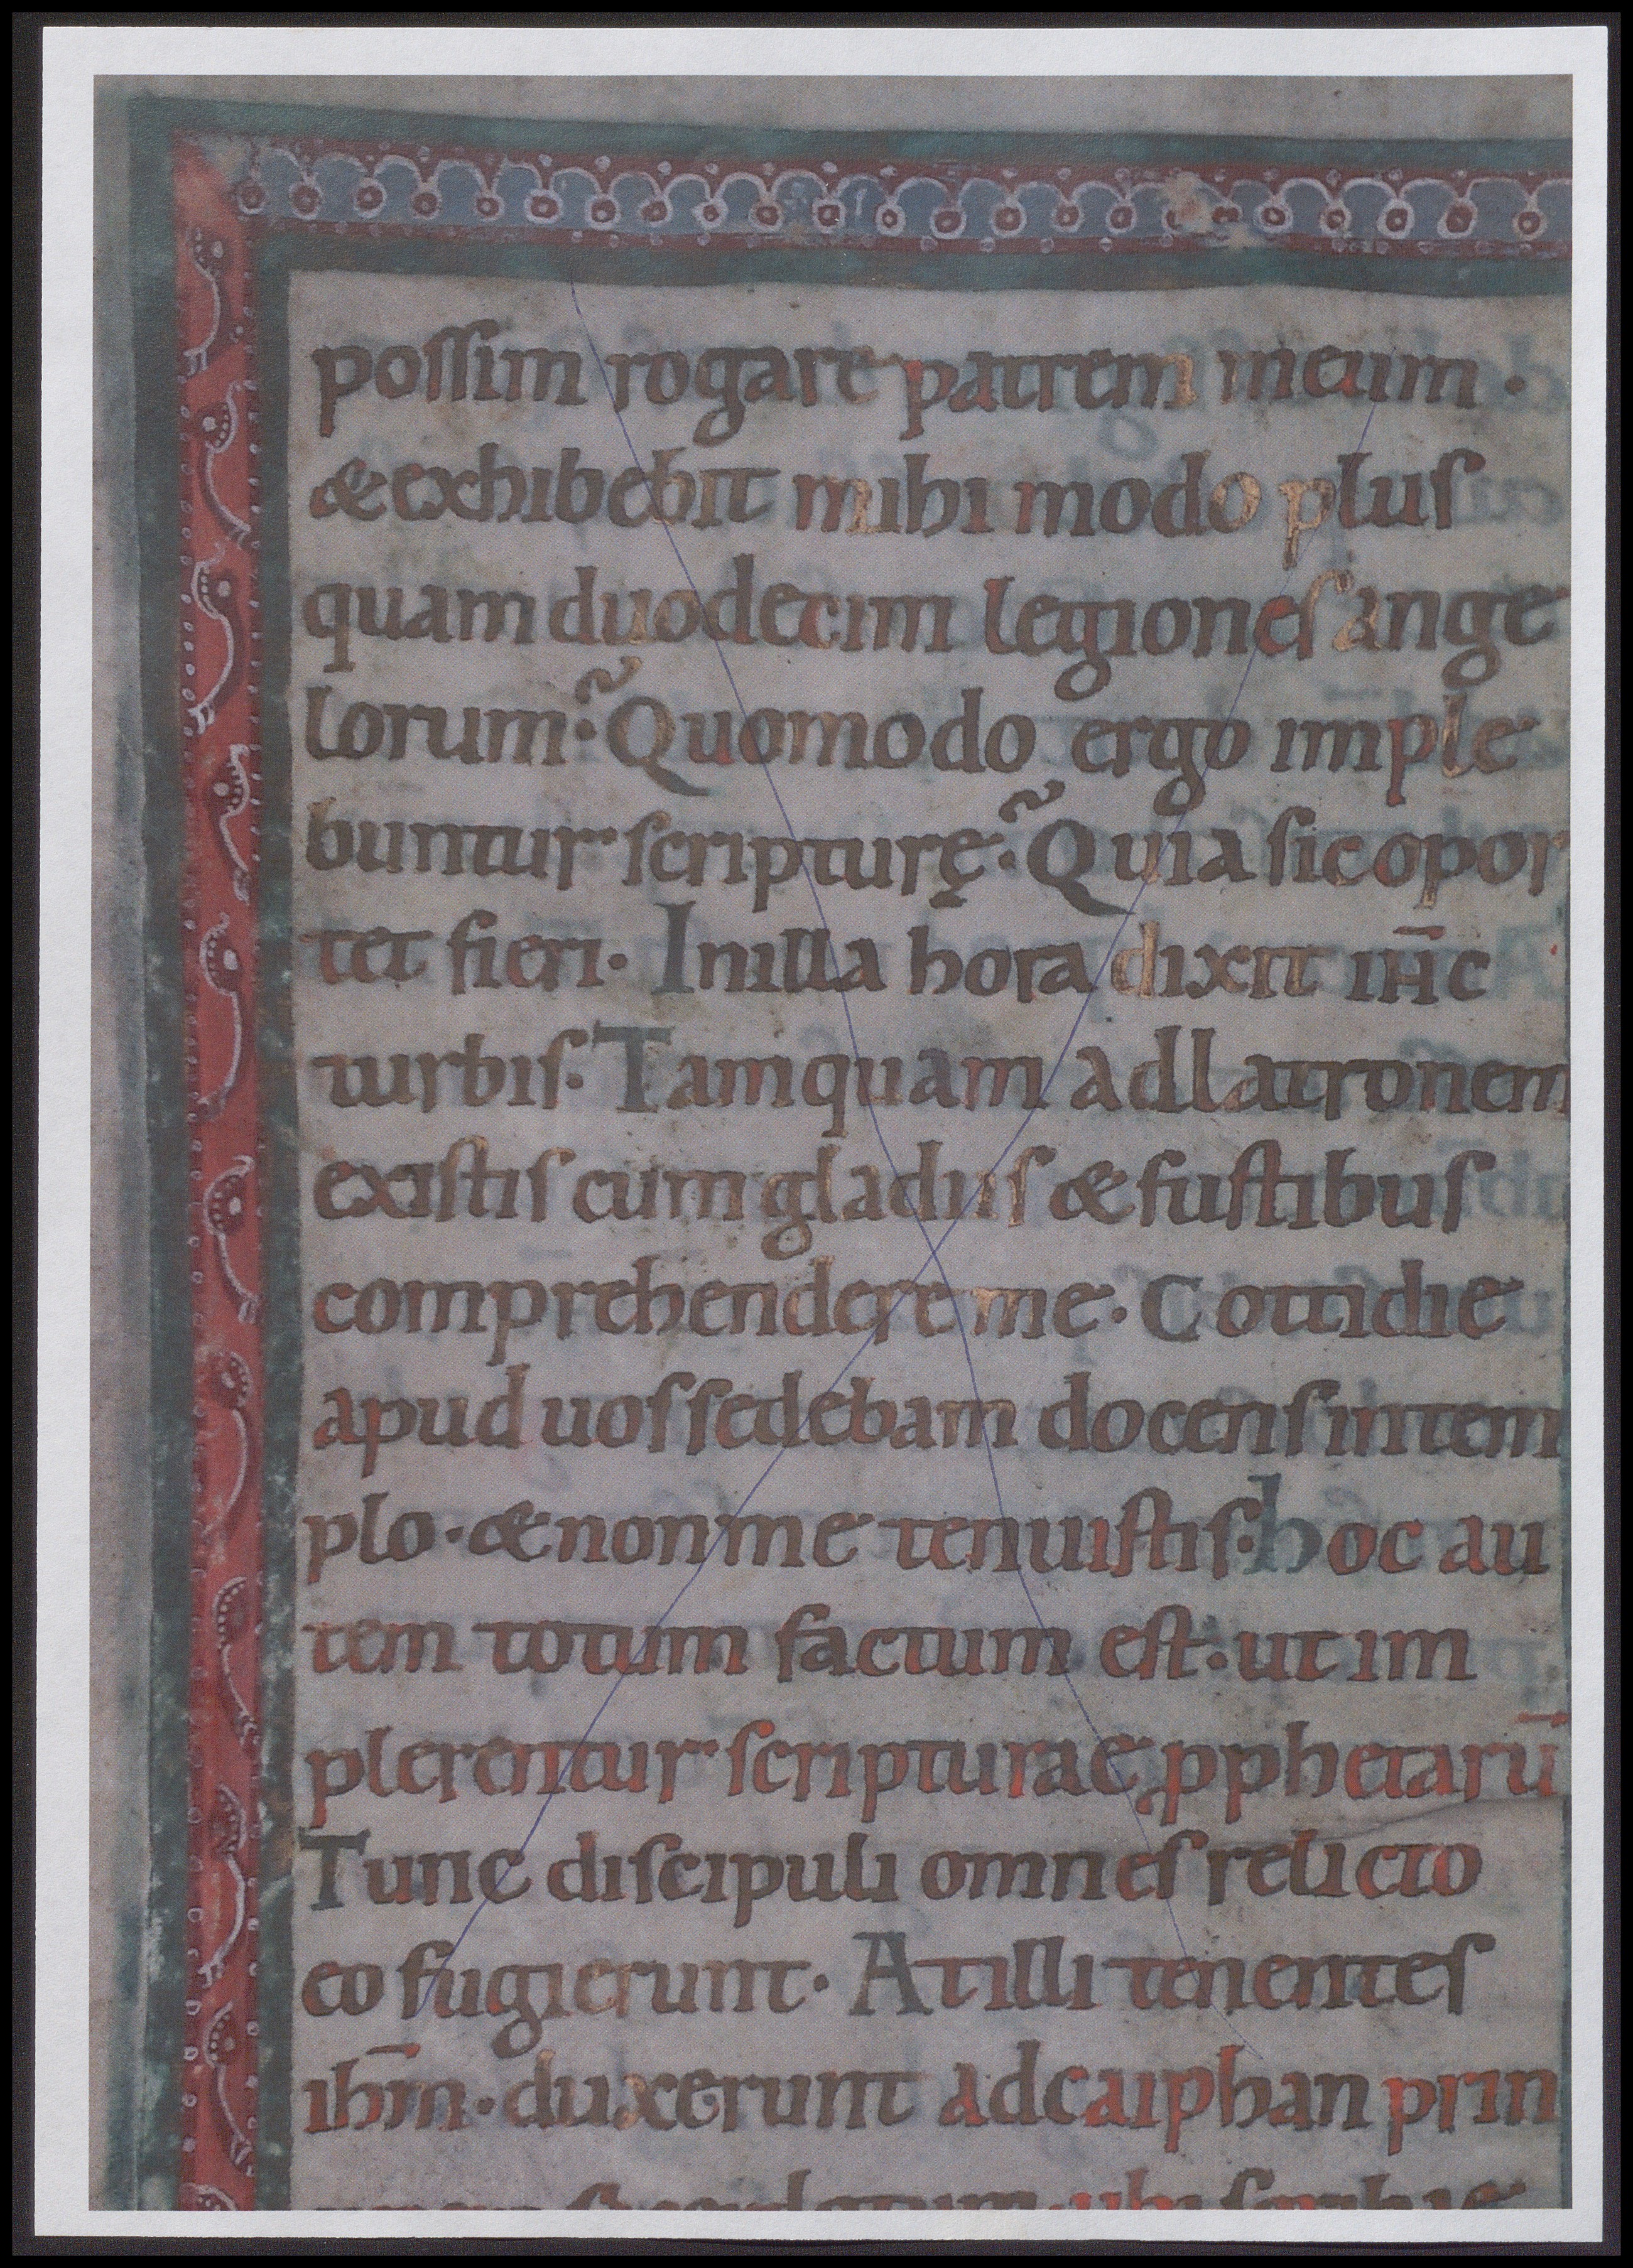 possim rogare patrem meum ·
& exhibebit mihi modo plus
quam duodecim legiones ange
lorum? Quomodo ergo imple
buntur scripturę? Quia sic opor
tet fieri · In illa hora dixit ih̄c
turbis · Tamquam ad latronem
existis cum gladiis & fustibus
comprehendere me · Cottidie
apud uos sedebam docens in tem
plo · & non me tenuistis · hoc au
tem totum factum est · ut im
plerentur scripturae ꝓphetarū
Tunc discipuli omnes relicto
eo fugierunt · At illi tenentes
ihm̄ · duxerunt ad caiphan prin